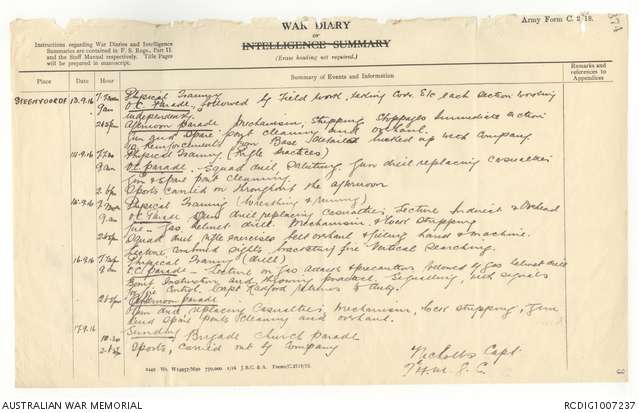 Army Form C. 2118.
WAR DIARY
or
INTELLIGENCE SUMMARY
(Erase heading not required.)
Instructions regarding War Diaries and Intelligence
Summaries are contained in F. S. Regs., Part II.
and the Staff Manual respectively. Title Pages
will be prepared in manuscript.
Place Date Hour Summary of Events and Information Remarks and references to Appendices
13.9.16 Physical Training
9am O.C. Parade, followed by Field work, taking Cover, Etc each section working
independently.
Afternoon parade Mechanism, Stripping, Stoppages immediate action
Gun and Spare part cleaning and overhaul.
reinforcements from Base Details linked up with Company
14.9.16 Physical Training (Rifle Practices)
9am O.C. parade. Squad drill, Saluting, Gun drill replacing casualties
Gun & Spare part cleaning
Sports carried on throughout the afternoon
15.9.16 Physical Training (Wrestling & running)
9am O.C. Parade Gun drill replacing casualties, Lecture Indirect & Overhead
fire - Gas helmet drill. Mechanism & lock stripping
Squad drill rifle exercises belt overhaul & filling hand & machine.
Lecture Combined Sights, Searching fire Vertical Searching.
16.9.16 Physical Training (drill)
9am O.C. Parade - Lecture on gas & precautions followed by gas helmet drill
Instruction and throwing practice. Signalling, with signals
Capt Radford returns to duty.
Afternoon parade
Gun drill replacing Casualties, Mechanism, lock stripping, Gun
and Spare parts cleaning and overhaul.
17.9.16 Sunday
10.30 Brigade Church Parade
Sports, carried out by Company
Nicholls Capt.
2449 Wt. W14957/M90 750,000 1/16 J.B.C. & A. Forms/C.2118/12.
AUSTRALIAN WAR MEMORIAL
RCDIG1007237